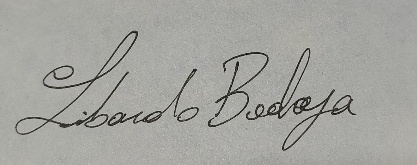 Libardo Bedoya